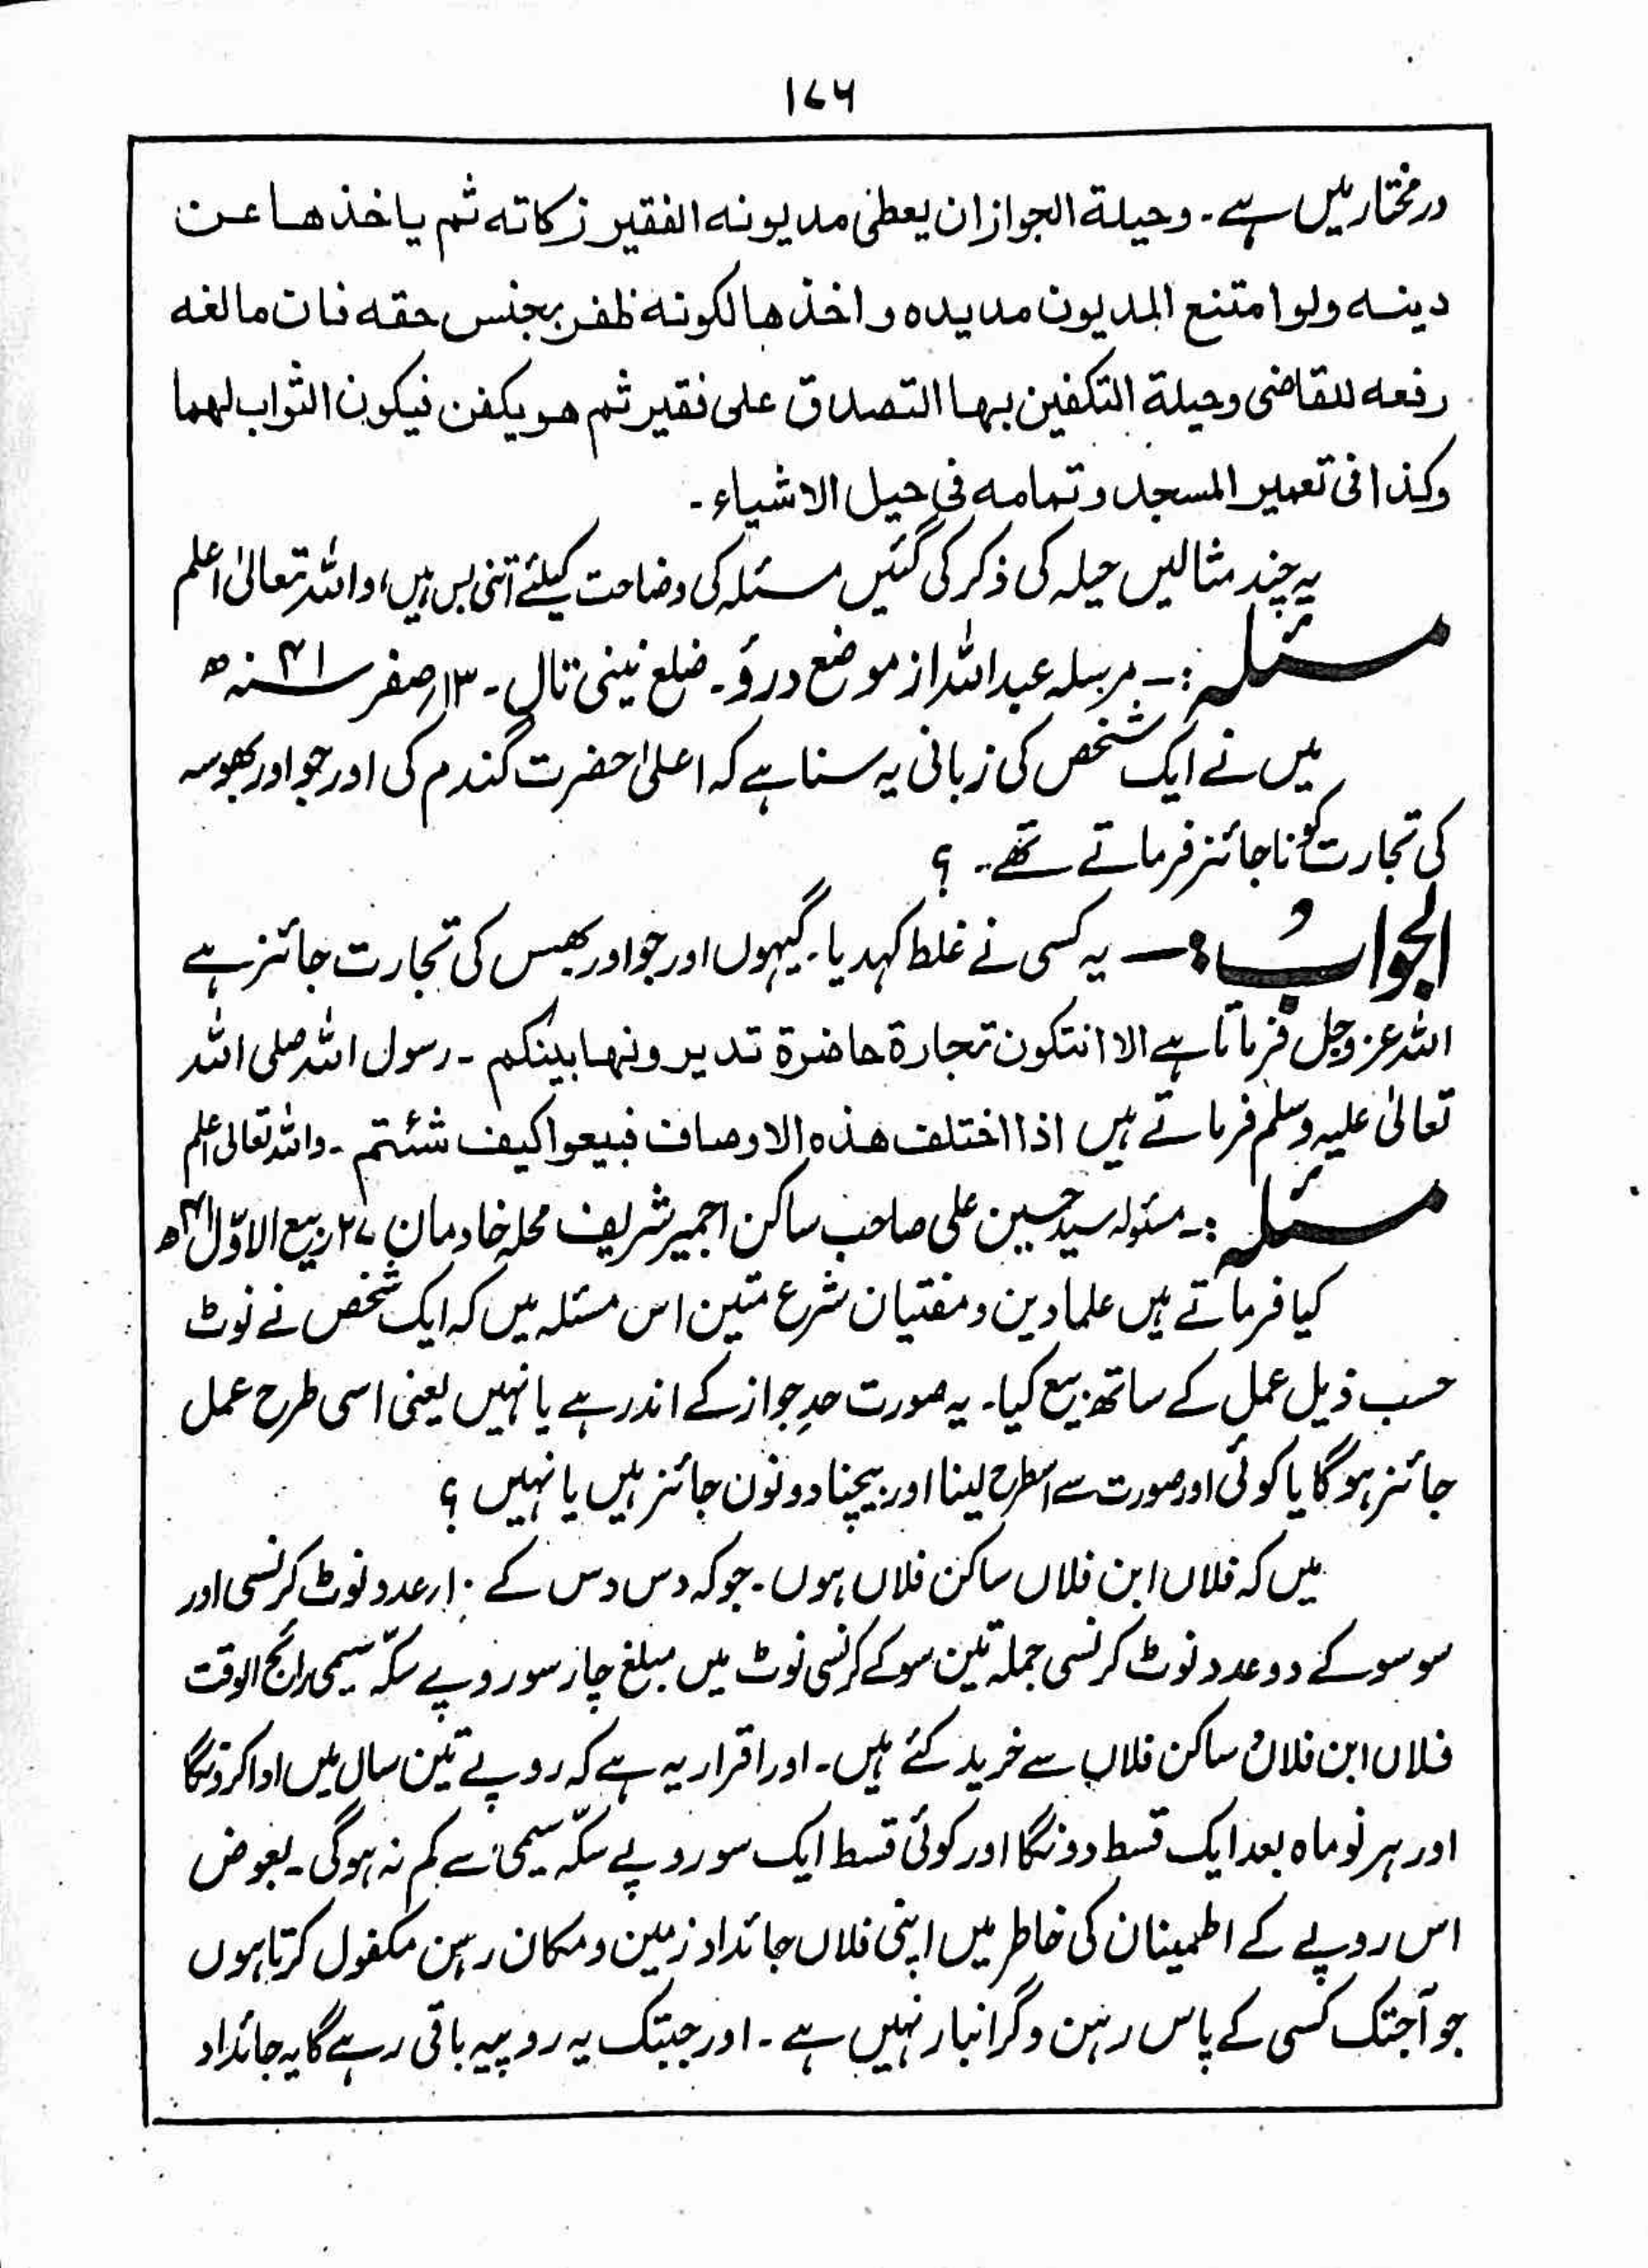 ۱۷۶
درمختار میں ہے۔ وحیلة الجواز ان یعطی مدیونه الفقیر زکاته ثم یاخذها عن
دینه ولو امتنع المدیون مدیده واخذها لکونه ظفر بجنس حقه فان مالغه
رفعه للقاضی وحیلة التکفین بها التصدق علی فقیر ثم هو یکفن فیکون الثواب لهما
وکذا فی تعمیر المسجد وتمامه فی حیل الاشیاء۔
یہ چند مثالیں حیلہ کی ذکر کی گئیں مسئلہ کی وضاحت کیلئے اتنی بس ہیں، واللہ تعالیٰ اعلم
مسئلہ :۔ مرسلہ عبداللہ از موضع درؤ۔ ضلع نینی تال۔ ۱۳؍صفر سنہ ۴۱ھ
میں نے ایک شخص کی زبانی یہ سنا ہے کہ اعلیٰ حضرت گندم کی اور جو اور بھوسہ
کی تجارت کو ناجائز فرماتے تھے۔ ؟
الجوابُ :— یہ کسی نے غلط کہدیا۔ گیہوں اور جو اور بھس کی تجارت جائز ہے
اللہ عزوجل فرماتا ہے الا ان تکون تجارة حاضرة تدیرونها بینکم ۔ رسول اللہ صلی اللہ
تعالیٰ علیہ وسلم فرماتے ہیں اذا اختلف هذه الاوصاف فبیعوا کیف شئتم ۔ واللہ تعالیٰ اعلم
مسئلہ :۔ مسئولہ سید حسین علی صاحب ساکن اجمیر شریف محلہ خادمان ۲۷ ربیع الاوّل ۴۱ھ
کیا فرماتے ہیں علما دین ومفتیان شرع متین اس مسئلہ میں کہ ایک شخص نے نوٹ
حسب ذیل عمل کے ساتھ بیع کیا۔ یہ صورت حدِ جواز کے اندر ہے یا نہیں یعنی اسی طرح عمل
جائز ہوگا یا کوئی اور صورت سے اسطرح لینا اور بیچنا دونوں جائز ہیں یا نہیں ؟
میں کہ فلاں ابن فلاں ساکن فلاں ہوں۔ جو کہ دس دس کے ۱۰؍عدد نوٹ کرنسی اور
سو سو کے دو عدد نوٹ کرنسی جملہ تین سو کے کرنسی نوٹ میں مبلغ چار سو روپے سکّہ سیمی رائج الوقت
فلاں ابن فلاں ساکن فلاں سے خرید کئے ہیں۔ اور اقرار یہ ہے کہ روپے تین سال میں ادا کرونگا
اور ہر نو ماہ بعد ایک قسط دونگا اور کوئی قسط ایک سو روپے سکّہ سیمی سے کم نہ ہوگی۔ بعوض
اس روپے کے اطمینان کی خاطر میں اپنی فلاں جائداد زمین و مکان رہن مکفول کرتا ہوں
جو آجتک کسی کے پاس رہن و گرانبار نہیں ہے ۔ اور جبتک یہ روپیہ باقی رہے گا یہ جائداد